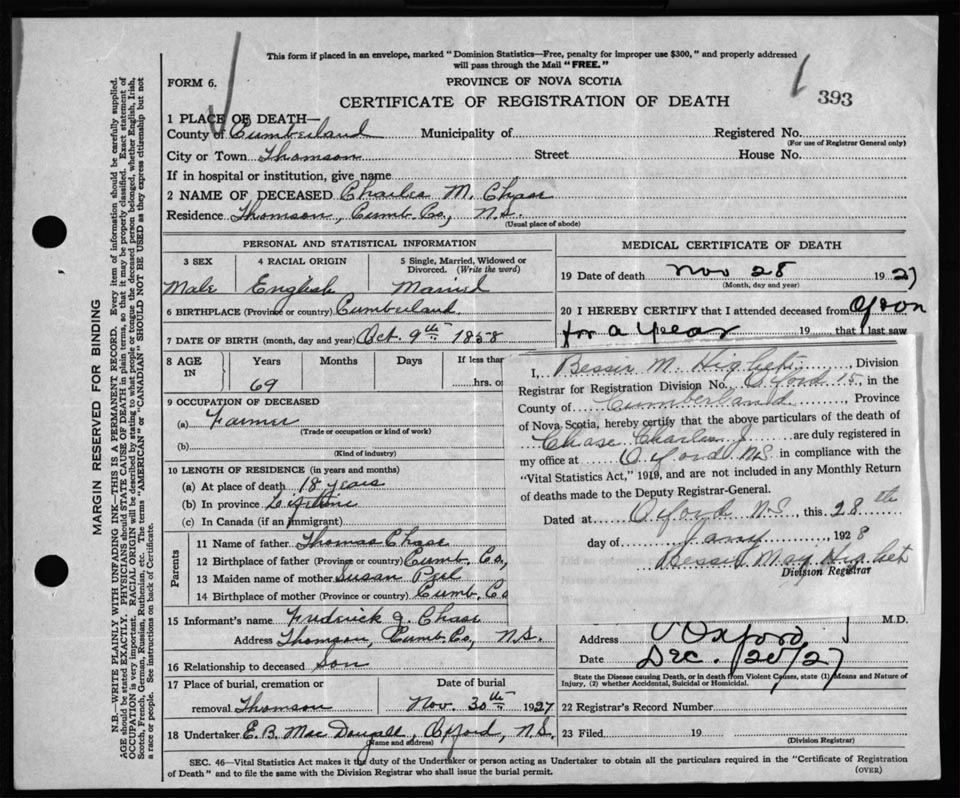 This form if placed in an envelope, marked "Dominion Statistics—Free, penalty for improper use $300," and properly addressed
will pass through the Mail "FREE."
FORM 6.
PROVINCE OF NOVA SCOTIA
393
CERTIFICATE OF REGISTRATION OF DEATH
1 PLACE OF DEATH—
County of Cumberland Municipality of Registered No.
(For use of Registrar General only)
City or Town Thomson Street House No.
If in hospital or institution, give name
2 NAME OF DECEASED Charles M. Chase
Residence Thomson, Cumb. Co., N.S.
(Usual place of abode)
PERSONAL AND STATISTICAL INFORMATION
3 SEX 4 RACIAL ORIGIN 5 Single, Married, Widowed or
Divorced. (Write the word)
Male English Married
6 BIRTHPLACE (Province or country) Cumberland
7 DATE OF BIRTH (month, day and year) Oct. 9th 1858
8 AGE Years Months Days If less than
IN 69 hrs. or
9 OCCUPATION OF DECEASED
(a) Farmer
(Trade or occupation or kind of work)
(b)
(Kind of industry)
10 LENGTH OF RESIDENCE (in years and months)
(a) At place of death 18 years
(b) In province Lifetime
(c) In Canada (if an immigrant)
Parents
11 Name of father Thomas Chase
12 Birthplace of father (Province or country) Cumb. Co,
13 Maiden name of mother Susan
14 Birthplace of mother (Province or country) Cumb. Co
15 Informant's name Fredrick J. Chase
Address Thomson, Cumb. Co., N.S.
16 Relationship to deceased son
17 Place of burial, cremation or Date of burial
removal Thomson Nov. 30th 1927
18 Undertaker E. B. Mac Dougall, Oxford, N.S.
(Name and address)
MEDICAL CERTIFICATE OF DEATH
19 Date of death Nov 28 1927
(Month, day and year)
20 I HEREBY CERTIFY that I attended deceased from
for a year 19 that I last saw
I, Bessie M. Higbet, Division
Registrar for Registration Division No. Oxford 15, in the
County of Cumberland, Province
of Nova Scotia, hereby certify that the above particulars of the death of
Chase Charles J. are duly registered in
my office at Oxford N.S. in compliance with the
"Vital Statistics Act," 1919, and are not included in any Monthly Return
of deaths made to the Deputy Registrar-General.
Dated at Oxford N.S., this 28th
day of Jany, 1928
Bessie May Higbet
Division Registrar
M.D.
Address Oxford
Date Dec. 20/27
State the Disease causing Death, or in death from Violent Causes, state (1) Means and Nature of
Injury, (2) whether Accidental, Suicidal or Homicidal.
22 Registrar's Record Number
23 Filed 19
(Division Registrar)
SEC. 46—Vital Statistics Act makes it the duty of the Undertaker or person acting as Undertaker to obtain all the particulars required in the "Certificate of Registration
of Death" and to file the same with the Division Registrar who shall issue the burial permit.
(OVER)
MARGIN RESERVED FOR BINDING
N.B.—WRITE PLAINLY WITH UNFADING INK—THIS IS A PERMANENT RECORD. Every item of information should be carefully supplied.
AGE should be stated EXACTLY. PHYSICIANS should STATE CAUSE OF DEATH in plain terms, so that it may be properly classified. Exact statement of
OCCUPATION is very important. RACIAL ORIGIN will be described by stating to what people or tongue the deceased person belonged, whether English, Irish,
Scotch, French, German, Russian, Ruthenian, etc. The terms "AMERICAN" or "CANADIAN" SHOULD NOT BE USED as they express citizenship but not
a race or people. See instructions on back of Certificate.